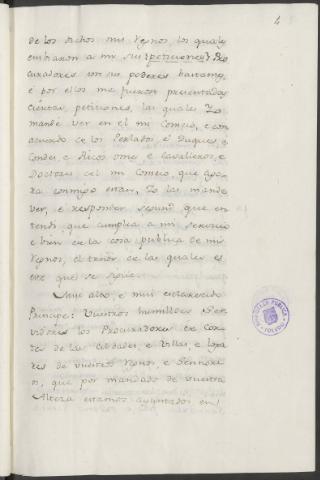 4
de los dichos mis Regnos, los quales
embiaron a mi sus (peticiones) Pro
curadores con sus poderes bastantes,
é por ellos me fueron presentadas
ciertas peticiones, las quales Yo
mandé ver en el mi Consejo, é con
acuerdo de los Perlados é Duques, é
Condes, é Ricos omes é Cavalleros, é
Doctores del mi Consejo, que ago
ra conmigo estan, Yo las mandé
ver, é responder segund que en
tendi que cumplia a mi servicio
é bien de la cosa publica de mis
Regnos, el tenor de las quales es
este que se sigue
Mui alto, é mui esclarecido
Principe: Vuestros humilldes Ser
vidores los Procuradores de Cor
tes de las Cibdades é Villas, é loga
res de vuestros Regnos, é Sennori
os, que por mandado de vuestra
Alteza estamos ayuntados en
BIBLIOTECA PUBLICA
TOLEDO